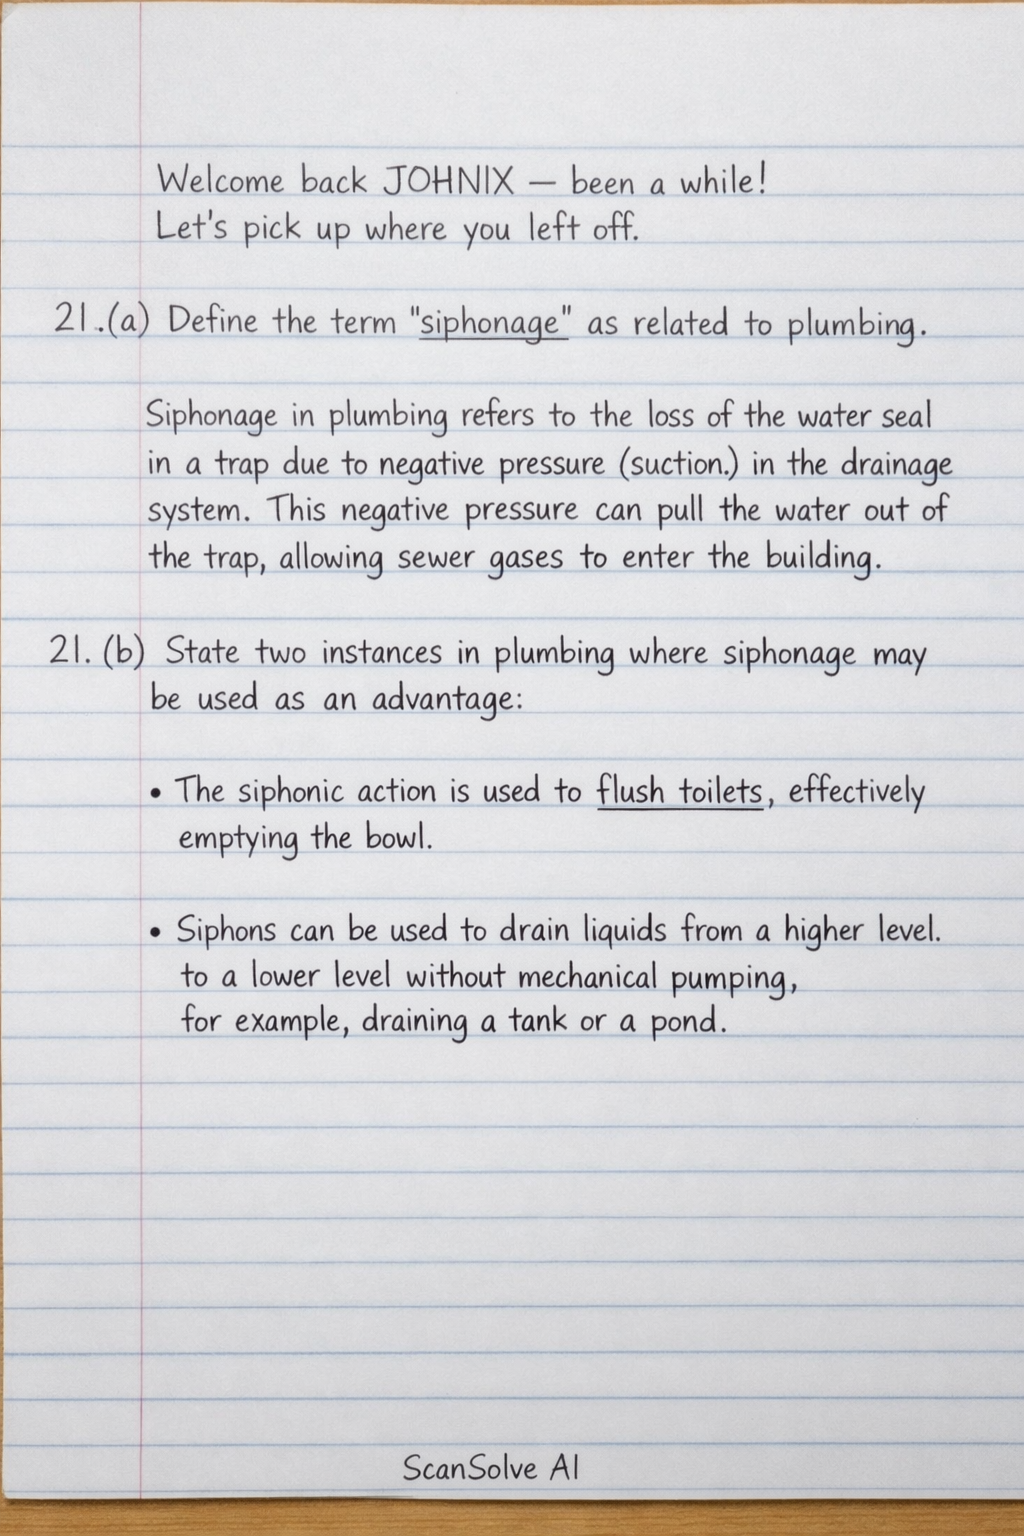 Welcome back JOHNIX — been a while!
Let's pick up where you left off.
21.(a) Define the term "siphonage" as related to plumbing.
Siphonage in plumbing refers to the loss of the water seal
in a trap due to negative pressure (suction.) in the drainage
system. This negative pressure can pull the water out of
the trap, allowing sewer gases to enter the building.
21. (b) State two instances in plumbing where siphonage may
be used as an advantage:
• The siphonic action is used to flush toilets, effectively
emptying the bowl.
• Siphons can be used to drain liquids from a higher level.
to a lower level without mechanical pumping,
for example, draining a tank or a pond.
ScanSolve AI